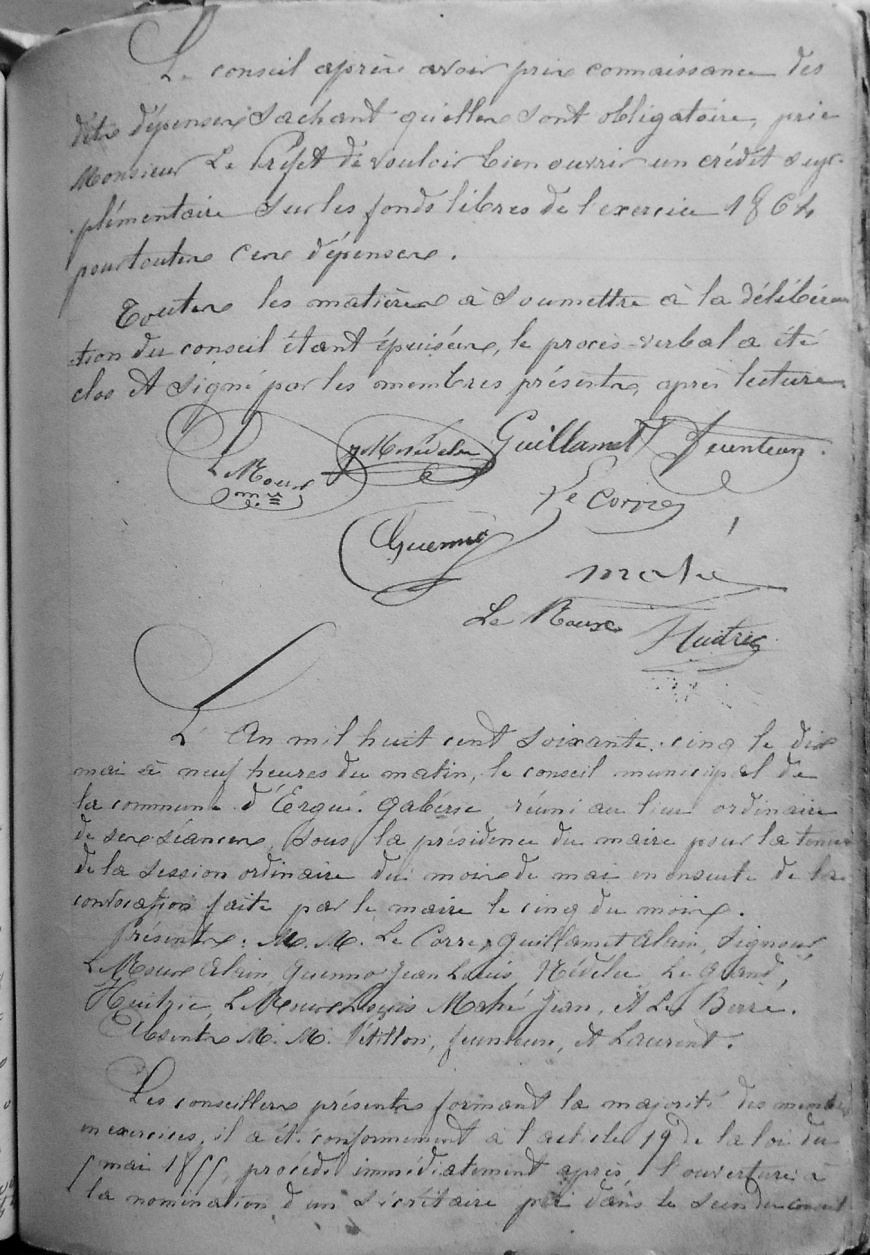 Le conseil après avoir pris connaissance des
dites dépenses sachant qu'elles sont obligatoire, prie
Monsieur Le Préfet de vouloir bien ouvrir un crédit sup-
plémentaire sur les fonds libres de l'exercice 1864
pour toutes ces dépenses.
Toutes les matières à soumettre à la délibéra
tion du conseil étant épuisées, le procès-verbal a été
clos et signé par les membres présents, après lecture.
Nédélec Guillamet feunteun
Le Roux
Le Corre
Guenno
mahé
Le Roux
Huitric
L'An mil huit cent soixante-cinq le dix
mai à neuf heures du matin, le conseil municipal de
la commune d'Ergué-gabéric, réuni au lieu ordinaire
de ses séances, sous la présidence du maire pour la tenue
de la session ordinaire du mois de mai en ensuite de la
convocation faite par le maire le cinq du mois.
présents: M. M. Le Corre, guillamet Alain, Signour,
Le Roux Alain, guenno Jean Louis, Nédélec, Le grand,
Huitric, Le Roux Louis Mahé Jean, et Le Berre.
Absents M. M. Pétillon, feunteun, et Laurent.
Les conseillers présents formant la majorité des membres
en exercices, il a été conformément à l'article 19 de la loi du
5 mai 1855, procédé immédiatement après l'ouverture à
la nomination d'un sécrétaire pris dans le sein du conseil